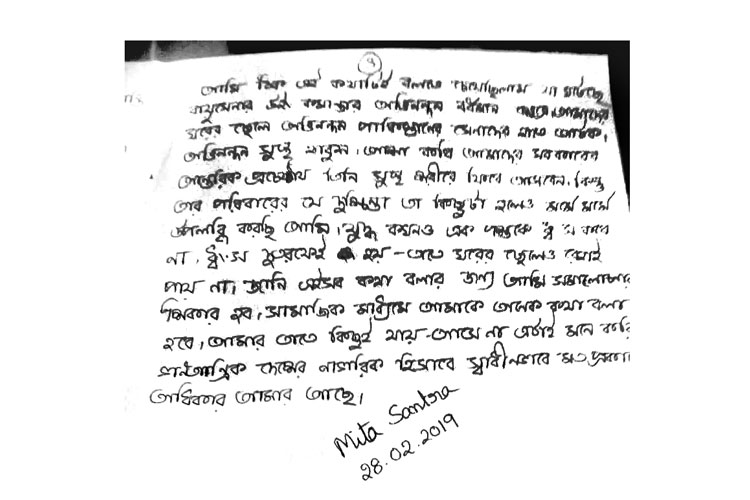 ৭
আমি ঠিক এই কথাটিই বলতে চেয়েছিলাম যা ঘটেছে
বায়ুসেনার উইং কমান্ডার অভিনন্দন বর্ধমান আমাদের
ঘরের ছেলে অভিনন্দন পাকিস্তানের সেনাদের হাতে আটক,
অভিনন্দন সুস্থ থাকুন, আশা করি আমাদের সরকারের
আন্তরিক প্রচেষ্টায় তিনি সুস্থ শরীরে ফিরে আসবেন, কিন্তু
তার পরিবারের যে দুশ্চিন্তা তা কিছুটা হলেও মর্মে মর্মে
উপলব্ধি করছি আমি। যুদ্ধ কখনও এক পক্ষকে ধ্বংস করে
না, ধ্বংস দুতরফেই হয় - তাতে ঘরের ছেলেও রেহাই
পায় না, জানি এইসব কথা বলার জন্য আমি সমালোচনার
শিকার হব, সামাজিক মাধ্যমে আমাকে অনেক কথা বলা
হবে, আমার তাতে কিছুই যায়-আসে না এটাই মনে করি
গণতান্ত্রিক দেশের নাগরিক হিসাবে স্বাধীনভাবে মত প্রকাশের
অধিকার আমার আছে।
Mita Santra
28.02.2019